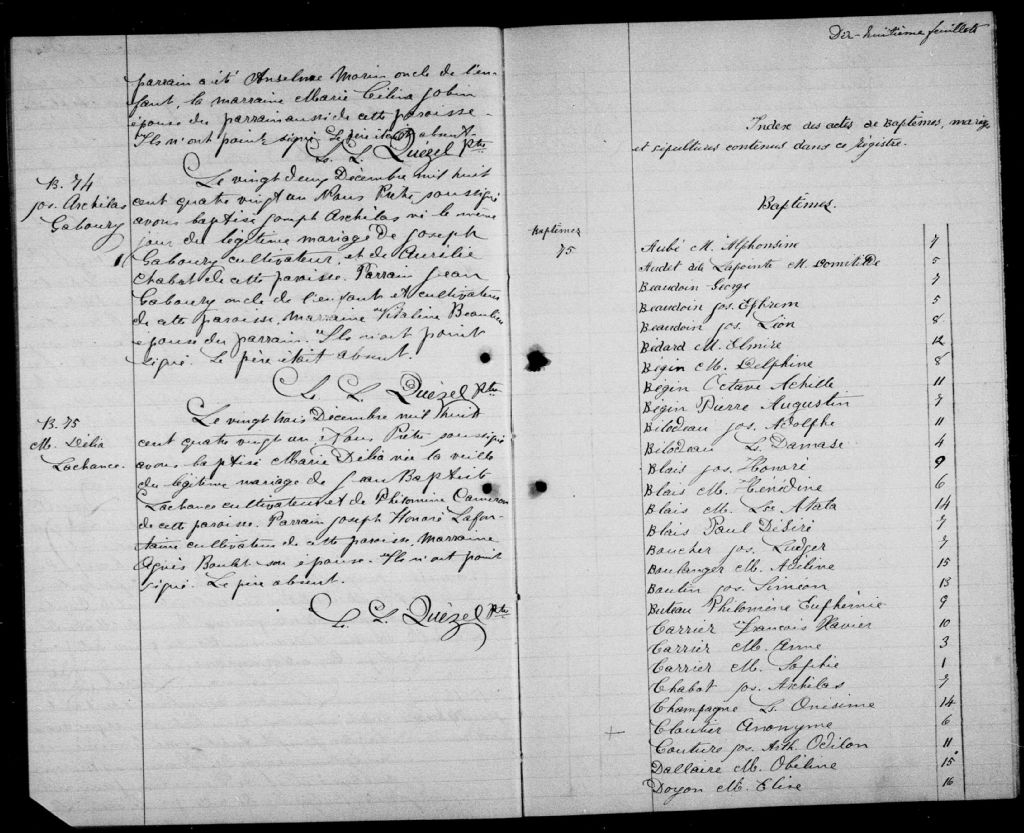 parrain a été Anselme Morin oncle de l'en-
fant, la marraine Marie Célina Jobin
épouse du parrain aussi de cette paroisse.
Ils n'ont point signé. Le père était absent.
L. L. Quézel Ptre
B. 74
Jos. Archilas
Gaboury
Le vingt deux Décembre mil huit
cent quatre vingt un Nous Prêtre soussigné
avons baptisé Joseph Archilas né le même
jour du légitime mariage de Joseph
Gaboury cultivateur, et de Aurélie
Chabot de cette paroisse. Parrain Jean
Gaboury oncle de l'enfant et cultivateur
de cette paroisse, marraine Vitaline Beaulieu
épouse du parrain. Ils n'ont point
signé. Le père était absent.
L. L. Quézel Ptre
B. 75
M. Délia
Lachance.
Le vingt trois Décembre mil huit
cent quatre vingt un Nous Prêtre soussigné
avons baptisé Marie Délia née la veille
du légitime mariage de Jean Baptiste
Lachance cultivateur et de Philomine Cameron
de cette paroisse. Parrain Joseph Honoré Lafon-
taine cultivateur de cette paroisse, marraine
Agnès Boulet son épouse. Ils n'ont point
signé. Le père absent.
L. L. Quézel Ptre
Dix-huitième feuillet
Index des actes de Baptêmes, mariage
et sépultures contenus dans ce registre.
Baptêmes.
Baptêmes
75
Aubé M. Alphonsine 7
Audet dite Lapointe M. Domitilde 5
Beaudoin George 7
Beaudoin Jos. Ephrem 5
Beaudoin Jos. Léon 8
Bedard M. Elmire 12
Bégin M. Delphine 8
Bégin Octave Achille 11
Bégin Pierre Augustin 7
Bilodeau Jos. Adolphe 11
Bilodeau L. Damase 4
Blais Jos. Honoré 9
Blais M. Hénédine 6
Blais M. Léa Atala 14
Blais Paul Désiré 7
Boucher Jos. Ludger 7
Boulanger M. Adéline 15
Boutin Jos. Siméon 13
Buteau Philomène Euphémie 9
Carrier François Xavier 10
Carrier M. Anne 3
Carrier M. Sophie 1
Chabot Jos. Archilas 7
Champagne L. Onésime 14
Cloutier Anonyme 6
Couture Jos. Arth. Odilon 11
Dallaire M. Obéline 15
Doyon M. Elise 16